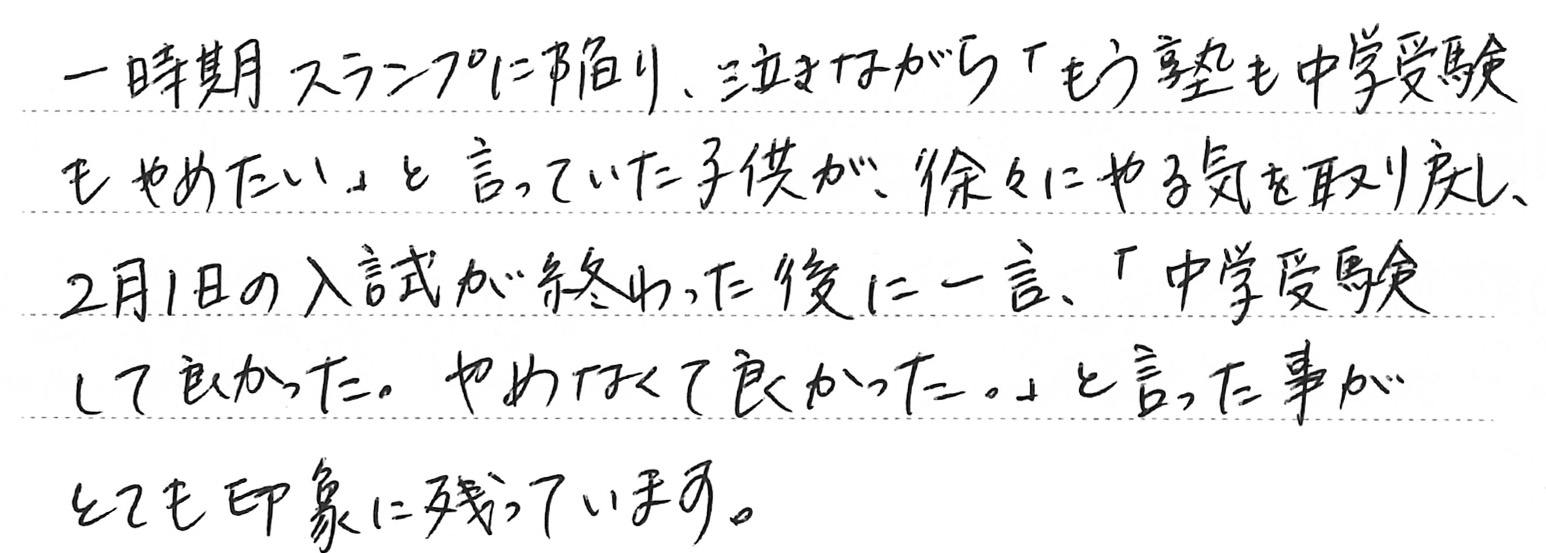 一時期スランプに陥り、泣きながら「もう塾も中学受験
もやめたい」と言っていた子供が、徐々にやる気を取り戻し、
2月1日の入試が終わった後に一言、「中学受験
して良かった。やめなくて良かった。」と言った事が
とても印象に残っています。